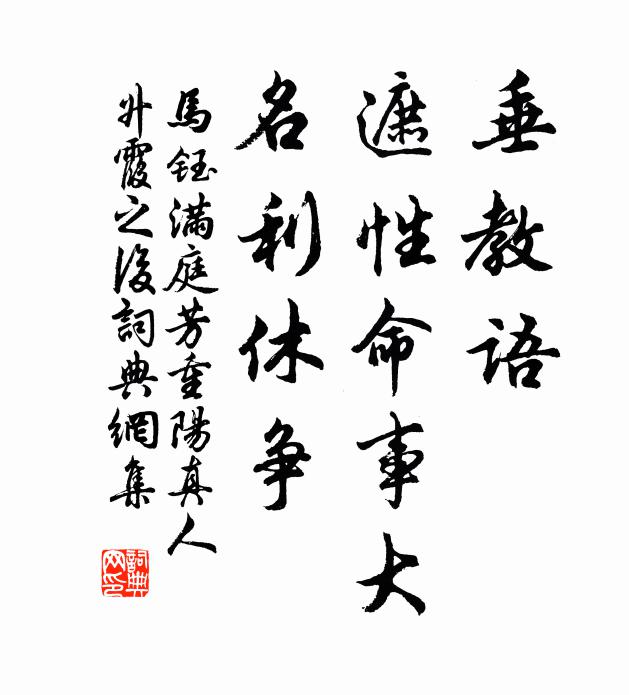 垂教语
遮性命事大
名利休争
馬鈺滿庭芳重陽真人
升霞之後詞典網集
詞典网印